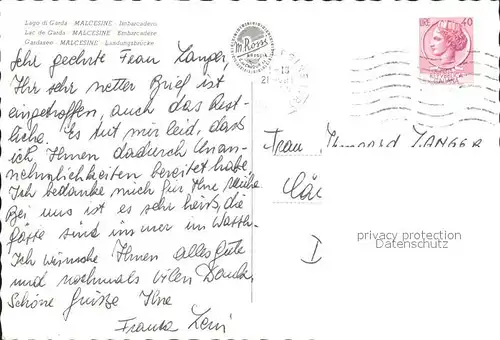 Lago di Garda MALCESINE Embarcadero
Lac de Garda MALCESINE Embarcadère
Gardasee MALCESINE Landungsbrücke
Sehr geehrte Frau Langer,
Ihr sehr netter Brief ist
eingetroffen, auch das Rest-
liche. Es tut mir leid, dass
ich Ihnen dadurch Unan-
nehmlichkeiten bereitet habe
Ich bedanke mich für Ihre Mühe
Bei uns ist es sehr heiß, die
Gäste sind immer im Wasser.
Ich wünsche Ihnen alles Gute
und nochmals vielen Dank.
Schöne Grüße Ihre
Franca
LIRE 40
Frau LANGER
privacy protection
Datenschutz